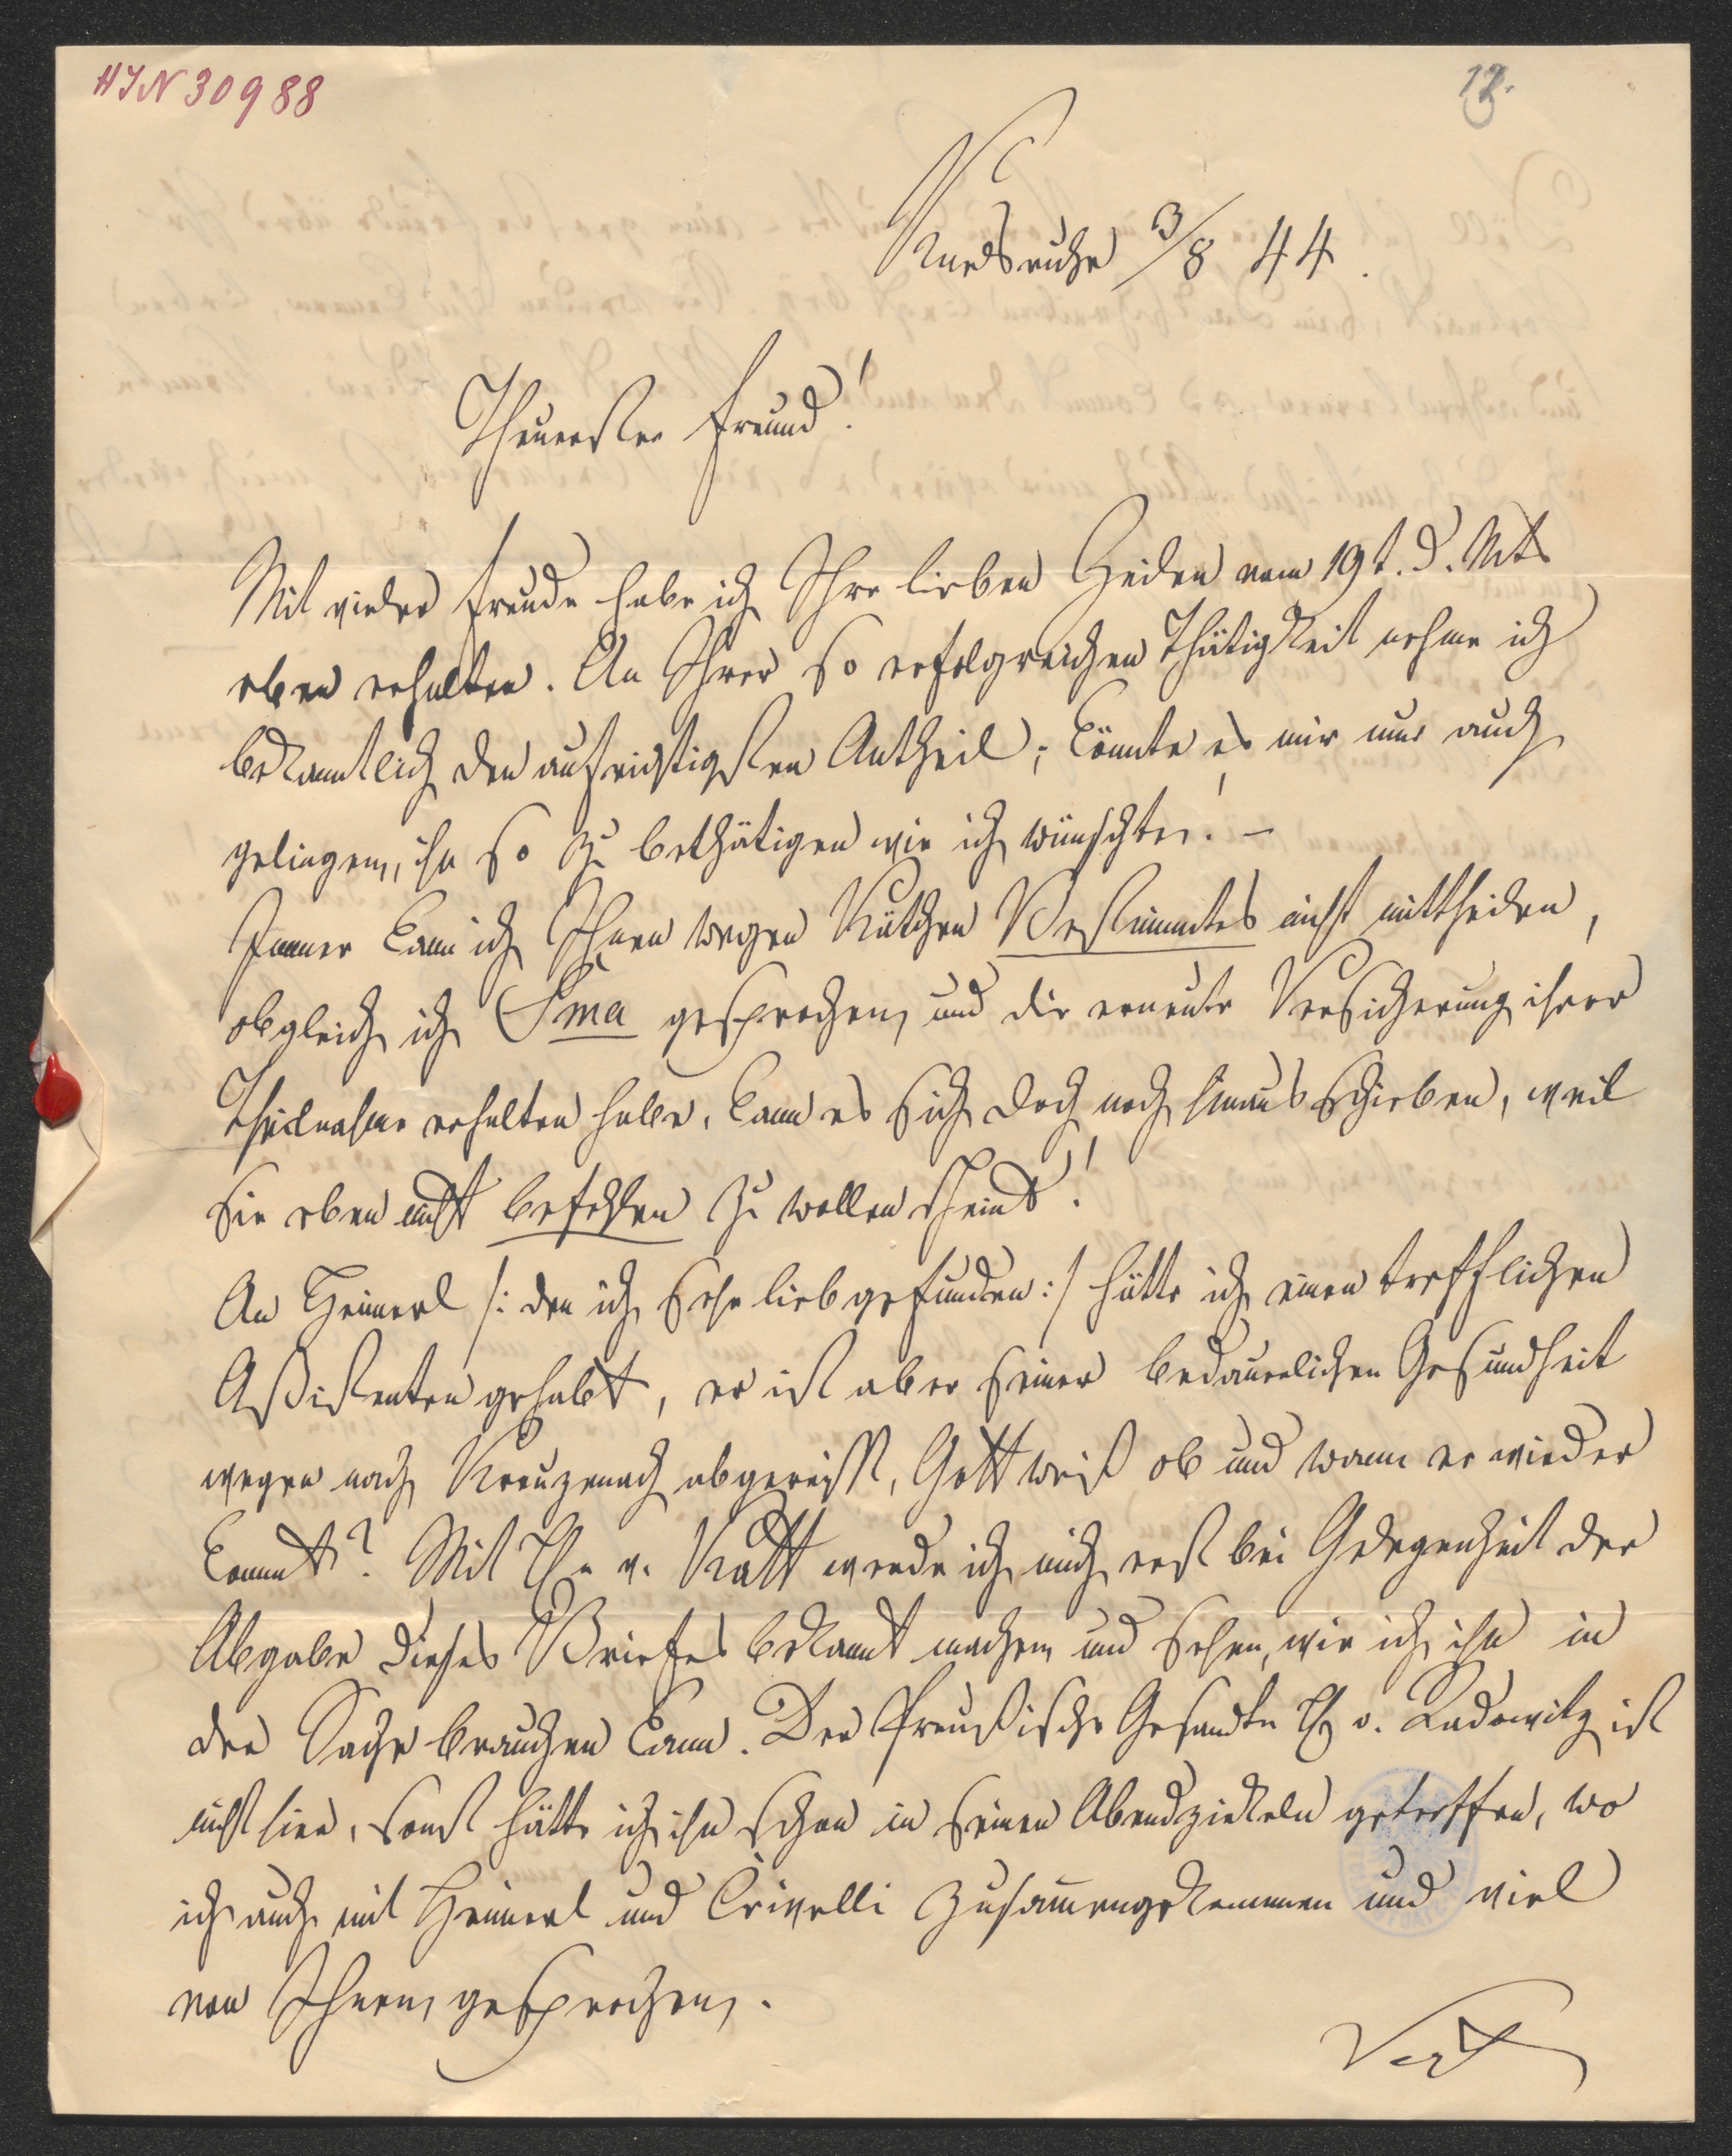 HIN 30988
12.
Karlsruhe 3/8 44.
Theuerster Freund!
Mit vieler Freude habe ich Ihre lieben Zeilen vom 19t. d. Mts
eben erhalten. An Ihrer so erfolgreichen Thätigkeit nehme ich
bekanntlich den aufrichtigsten Antheil; könnte es mir nur auch
gelingen, ihn so zu bethätigen wie ich wünschte! –
Immer kann ich Ihnen wegen Käthchen Bestimmtes nicht mittheilen,
obgleich ich gesprochen, und die erneute Versicherung ihrer
Theilnahme erhalten habe, kann es sich doch noch hinaus schieben, weil
sie eben nicht befehlen zu wollen scheint!
An Heimerl /: den ich sehr lieb gefunden :/ hätte ich einen trefflichen
Aßistenten gehabt, er ist aber seiner bedauerlichen Gesundheit
wegen nach Kreuznach abgereist, Gott weiß ob und wann er wieder
kommt? Mit H. v. Katt werde ich mich erst bei Gelegenheit der
Abgabe dieses Briefes bekannt machen und sehen, wie ich ihn in
der Sache brauchen kann. Der Preußische Gesandte H v. Radowitz ist
nicht hier, sonst hätte ich ihn schon in seinen Abendzirkeln getroffen, wo
ich auch mit Heimerl und Crivelli zusam̅engekommen und viel
von Ihnen gesprochen.